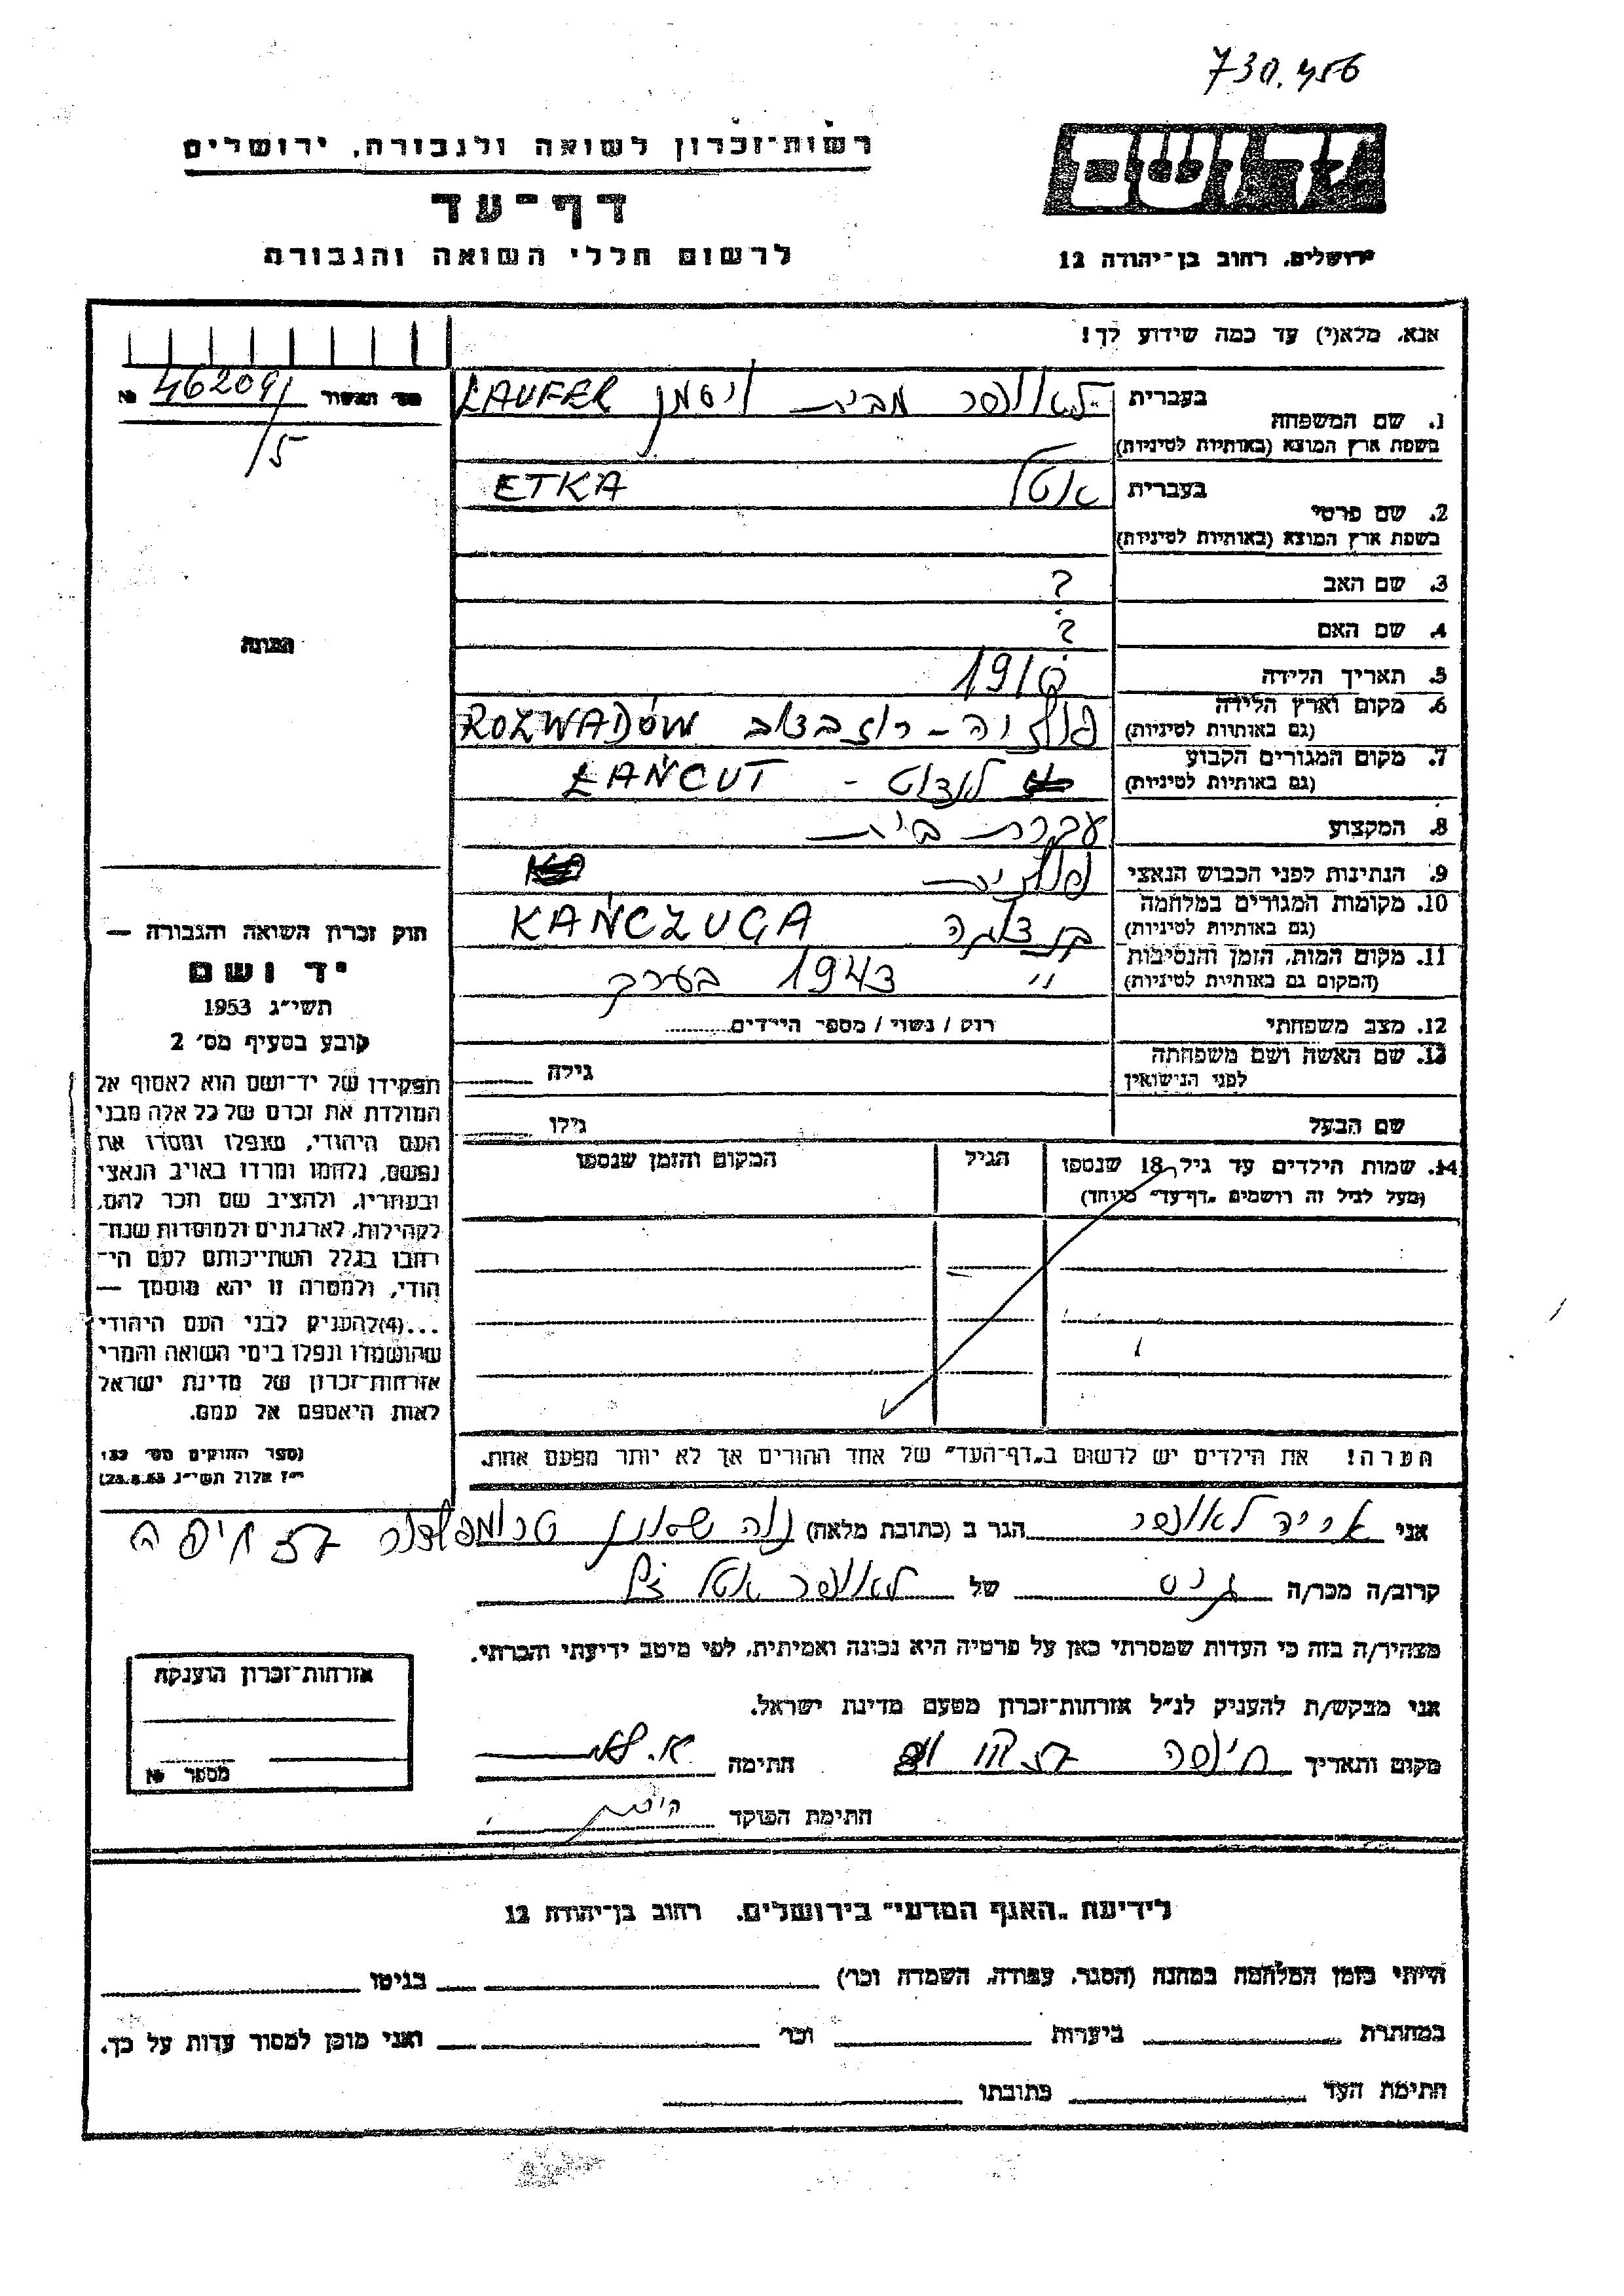 730.456
רשות־זכרון לשואה ולגבורה, ירושלים
דף־עד
לרשום חללי השואה והגבורה
יד ושם
ירושלים, רחוב בן־יהודה 12
אנא, מלא(י) עד כמה שידוע לך!
462091/5 №
בעברית לאופר מבית LAUFER
1. שם המשפחה
בשפת ארץ המוצא (באותיות לטיניות)
בעברית אטל ETKA
2. שם פרטי
בשפת ארץ המוצא (באותיות לטיניות)
3. שם האב ?
4. שם האם ?
5. תאריך הלידה 1910
6. מקום וארץ הלידה פולניה – רוזבצוב ROZWADÓW
(גם באותיות לטיניות)
7. מקום המגורים הקבוע לנצוט - ŁAŃCUT
(גם באותיות לטיניות)
8. המקצוע עקרת בית
9. הנתינות לפני הכבוש הנאצי פולנית
10. מקומות המגורים במלחמה קנצוגה KAŃCZUGA
(גם באותיות לטיניות)
11. מקום המות, הזמן והנסיבות " 1943 בערך
(המקום גם באותיות לטיניות)
12. מצב משפחתי רווק / נשוי / מספר הילדים
13. שם האשה ושם משפחתה גילה
לפני הנישואין
שם הבעל גילו
14. שמות הילדים עד גיל 18 שנספו הגיל המקום והזמן שנספו
(מעל לגיל זה רושמים "דף־עד" מיוחד)
הערה! את הילדים יש לרשום ב"דף־העד" של אחד ההורים אך לא יותר מפעם אחת.
התמונה
חוק זכרון השואה והגבורה —
יד ושם
תשי"ג 1953
קובע בסעיף מס' 2
תפקידו של יד־ושם הוא לאסוף אל
המולדת את זכרם של כל אלה מבני
העם היהודי, שנפלו ומסרו את
נפשם, נלחמו ומרדו באויב הנאצי
ובעוזריו, ולהציב שם וזכר להם,
לקהילות, לארגונים ולמוסדות שנח־
רבו בגלל השתייכותם לעם הי־
הודי, ולמטרה זו יהא מוסמך —
...(4) להעניק לבני העם היהודי
שהושמדו ונפלו בימי השואה והמרי
אזרחות־זכרון של מדינת ישראל
לאות היאספם אל עמם.
(ספר החוקים מס' 132
י"ז אלול תשי"ג 28.8.53)
אני אריה לאופר הגר ב (כתובת מלאה) נוה שאנן טרומפלדור חיפה
קרוב/ה מכר/ה גיס של לאופר אטל ז"ל
מצהיר/ה בזה כי העדות שמסרתי כאן על פרטיה היא נכונה ואמיתית, לפי מיטב ידיעתי והכרתי.
אני מבקש/ת להעניק לנ"ל אזרחות־זכרון מטעם מדינת ישראל.
מקום ותאריך חיפה חתימה
חתימת הפוקד
אזרחות־זכרון הוענקה
מספר №
לידיעת "האגף המדעי" בירושלים, רחוב בן־יהודה 12
הייתי בזמן המלחמה במחנה (הסגר, עבודה, השמדה וכו') בגיטו
במחתרת ביערות וכו' ואני מוכן למסור עדות על כך.
חתימת העד כתובתו